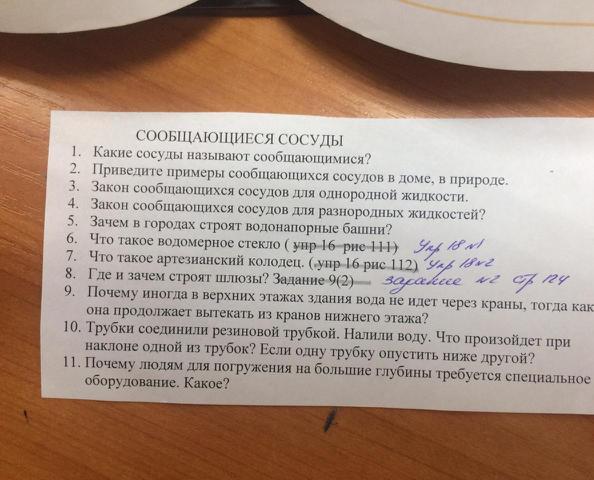 СООБЩАЮЩИЕСЯ СОСУДЫ
1. Какие сосуды называют сообщающимися?
2. Приведите примеры сообщающихся сосудов в доме, в природе.
3. Закон сообщающихся сосудов для однородной жидкости.
4. Закон сообщающихся сосудов для разнородных жидкостей?
5. Зачем в городах строят водонапорные башни?
6. Что такое водомерное стекло ( упр 16 рис 111) Упр 18 №1
7. Что такое артезианский колодец. ( упр 16 рис 112) Упр 18 №2
8. Где и зачем строят шлюзы? Задание 9(2) задание №2 стр 124
9. Почему иногда в верхних этажах здания вода не идет через краны, тогда как
она продолжает вытекать из кранов нижнего этажа?
10. Трубки соединили резиновой трубкой. Налили воду. Что произойдет при
наклоне одной из трубок? Если одну трубку опустить ниже другой?
11. Почему людям для погружения на большие глубины требуется специальное
оборудование. Какое?